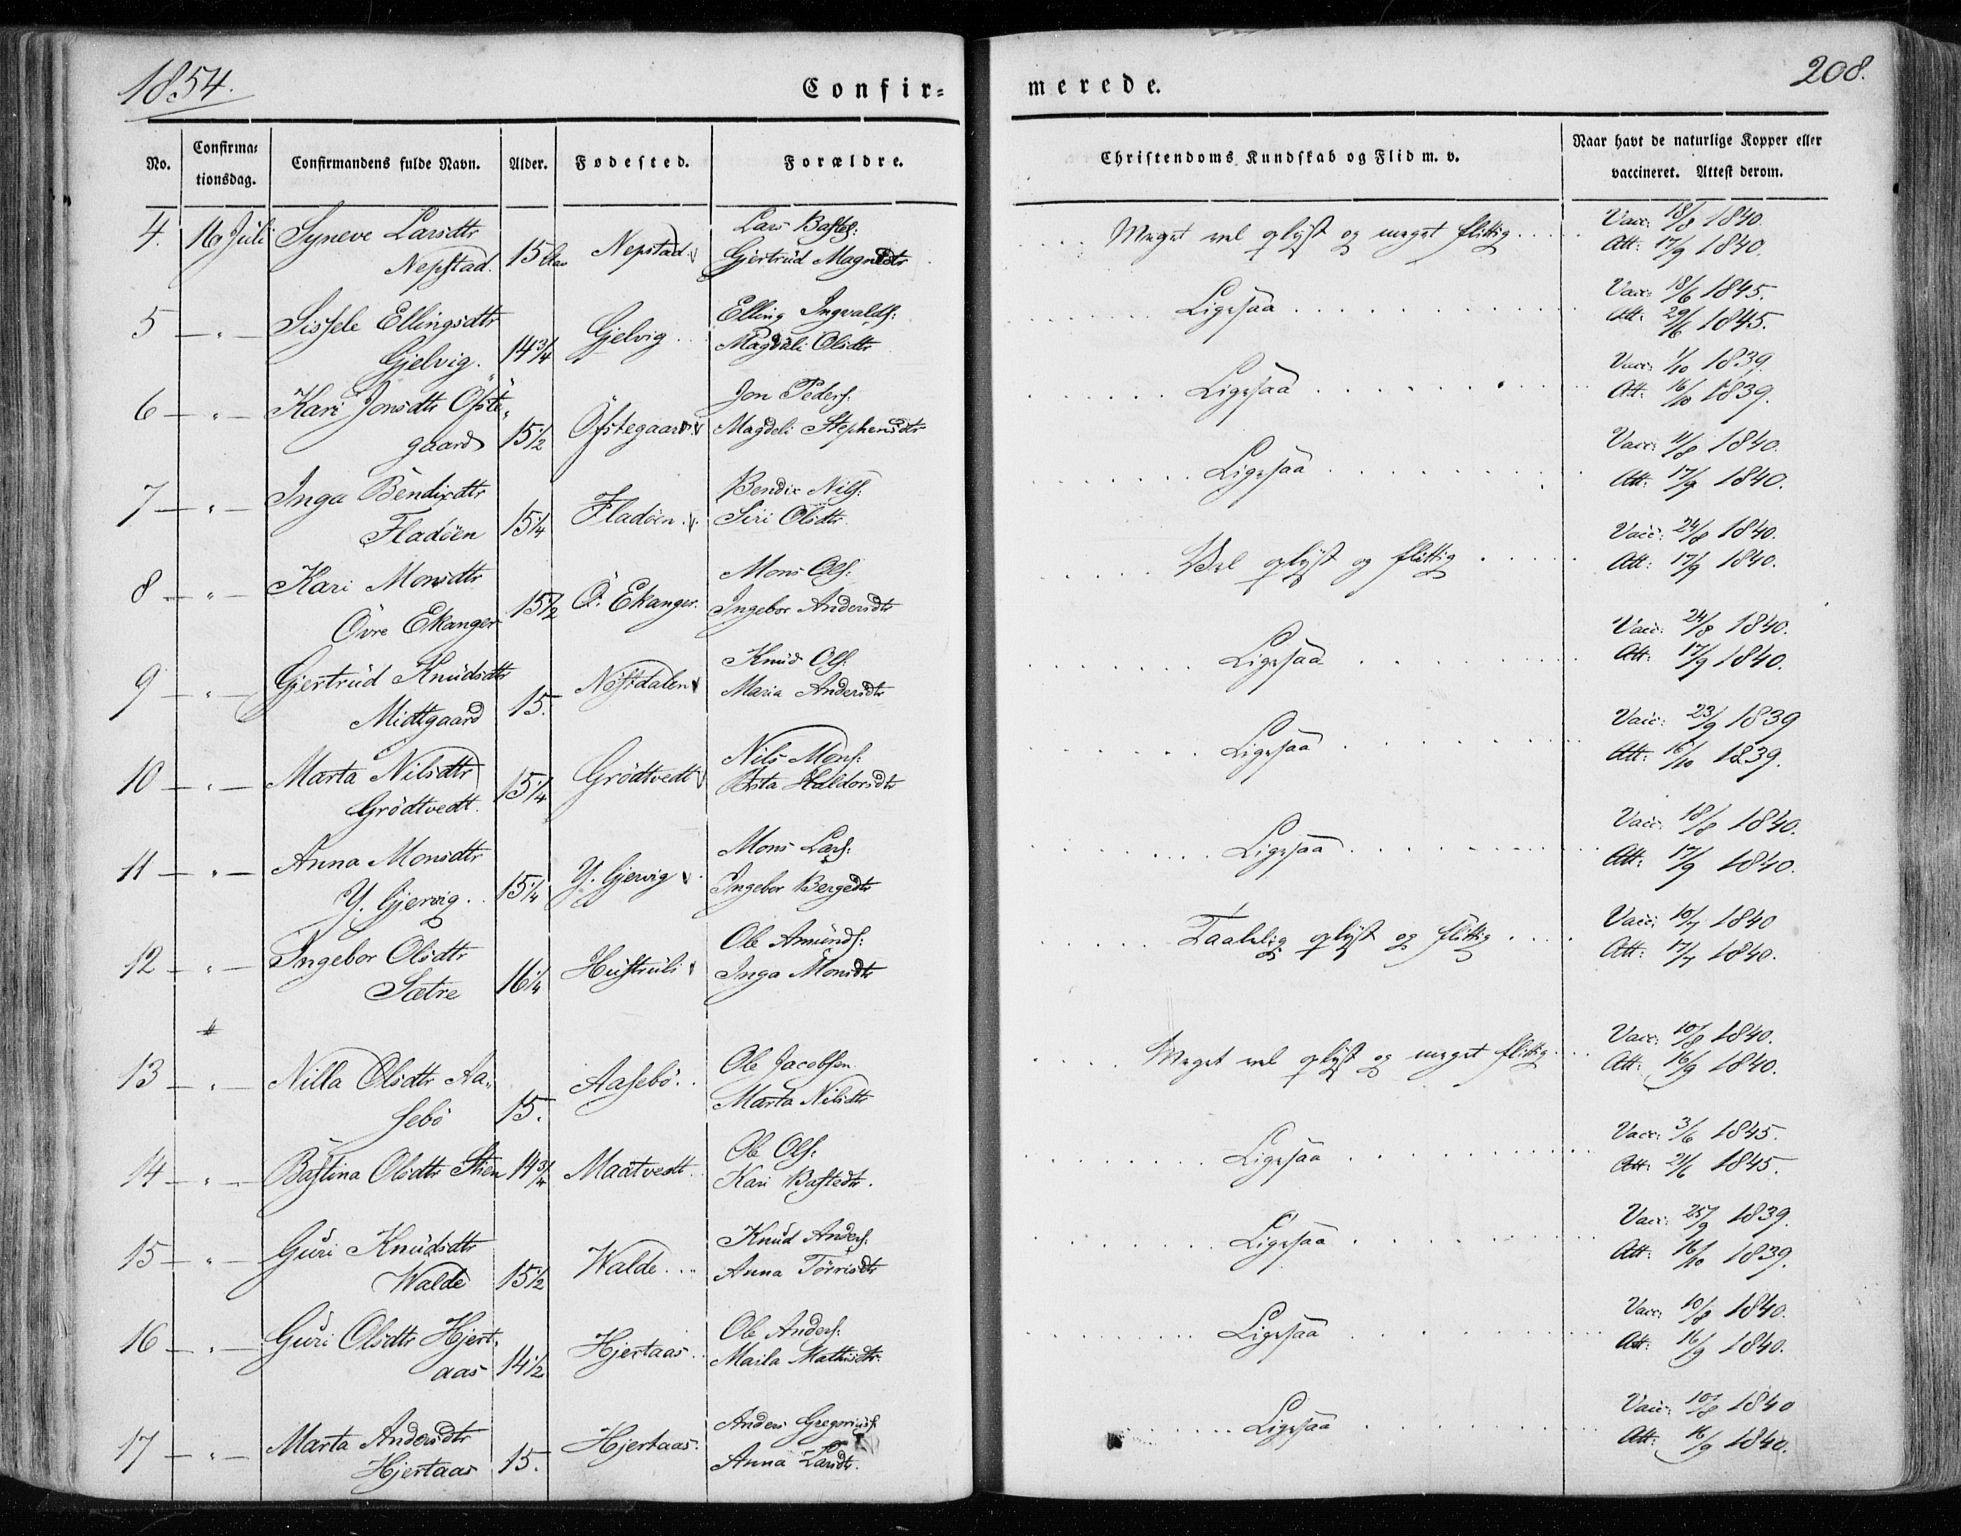 1854.
Confir-
merede.
208.
No.
Confirma-
tionsdag.
Confirmandens fulde Navn.
Alder.
Fødested.
Forældre.
Christendoms Kundskab og Flid m. v.
Naar havt de naturlige Kopper eller
vaccineret. Attest derom.
4. 16 Juli Syneve Larsdtr
Nepstad. 15 Aar Nepstad Lars Bastes:
Gjertrud Magnedtr
Meget vel oplyst og meget flittig
Vacc: 18/8 1840.
Att: 17/9 1840.
5 — " — Sissele Ellingsdtr
Gjelvig. 14 3/4 Gjelvig Elling Ingvalds:
Magdeli Olsdtr
Ligesaa
Vacc: 18/6 1845.
Att: 29/6 1845.
6 — " — Kari Jonsdtr Öfste-
gaard 15 1/2 Öfstegaard Jon Peders:
Magdeli Stephensdtr
Ligesaa
Vacc: 1/10 1839.
Att: 16/10 1839.
7 — " — Inga Bendixdtr
Fladöen 15 1/4 Fladöen Bendix Nils:
Siri Olsdtr
Ligesaa
Vacc: 11/8 1840.
Att: 17/9 1840.
8 — " — Kari Monsdtr
Övre Ekanger 15 1/2 Ö. Ekanger. Mons Ols:
Ingebor Andersdtr
Vel oplyst og flittig
Vacc: 24/8 1840.
Att: 17/9 1840.
9 — " — Gjertrud Knudsdtr
Midtgaard 15. Nöstdalen Knud Ols:
Maria Andersdtr
Ligesaa
Vacc: 24/8 1840.
Att: 17/9 1840.
10 — " — Marta Nilsdtr
Grödtvedt. 15 1/4 Grödtvedt Nils Mons:
Brita Haldorsdtr
Ligesaa
Vacc: 23/9 1839
Att: 16/10 1839.
11 — " — Anna Monsdtr
Y. Gjervig. 15 1/4 Y. Gjervig Mons Lars:
Ingebor Bergedtr
Ligesaa
Vacc: 18/8 1840.
Att: 17/9 1840.
12 — " — Ingebor Olsdtr
Sætre 16 1/4 Hustruli Ole Amunds:
Inga Monsdtr
Taalelig oplyst og flittig
Vacc: 10/7 1840
Att: 17/7 1840.
13 — " — Nilla Olsdtr Aa-
sebö 15. Aasebö. Ole Jacobsen
Marta Nilsdtr
Meget vel oplyst og meget flittig
Vacc: 10/8 1840.
Att: 16/9 1840.
14 — " — Bastina Olsdtr Stien 14 3/4 Maatvedt Ole Ols:
Kari Bastedtr.
Ligesaa
Vacc: 3/6 1845.
Att: 21/6 1845.
15 — " — Guri Knudsdtr
Walde 15 1/2 Walde Knud Anders:
Anna Törrisdtr
Ligesaa
Vacc: 25/9 1839.
Att: 16/10 1839.
16 — " — Guri Olsdtr Hjert-
aas 14 1/2 Hjertaas Ole Anders:
Marta Mathisdtr.
Ligesaa
Vacc: 10/8 1840.
Att: 16/9 1840.
17 — " — Marta Andersdtr
Hjertaas 15. Hjertaas. Anders Gregorius:
Anna Larsdtr.
Ligesaa
Vacc: 10/8 1840
Att: 16/9 1840.